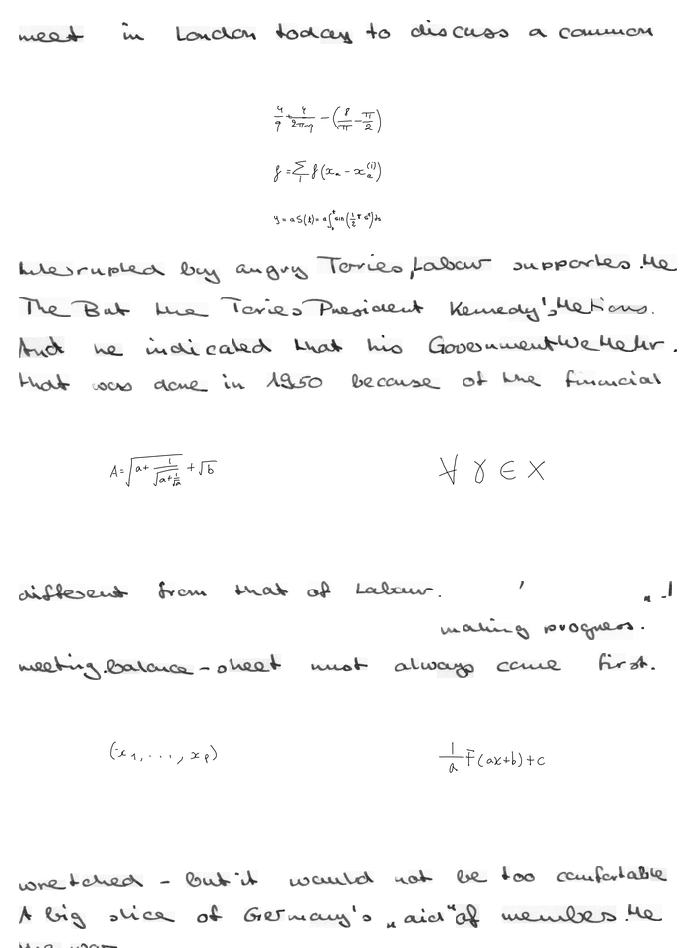 meet in London today to discuss a common
4/9 + 4/(2π-9) - (8/π - π/2)
f = Σ_i f(x_a - x_a^(i))
y = a S(t) = a ∫_0^t sin(1/2 π s²) ds
interrupted by angry Tories, Labour supporters. He
The But the Tories President Kennedy's
And he indicated that his Government
that was done in 1950 because of the financial
A = √(a + 1/√(a + 1/√a)) + √b
∀ γ ∈ X
different from that of Labour. ' „ -I
making progress.
meeting. balance-sheet must always come first.
(x_1, ..., x_p)
1/a F(ax+b)+c
wretched - but it would not be too comfortable
A big slice of Germany's „aid" of members. He